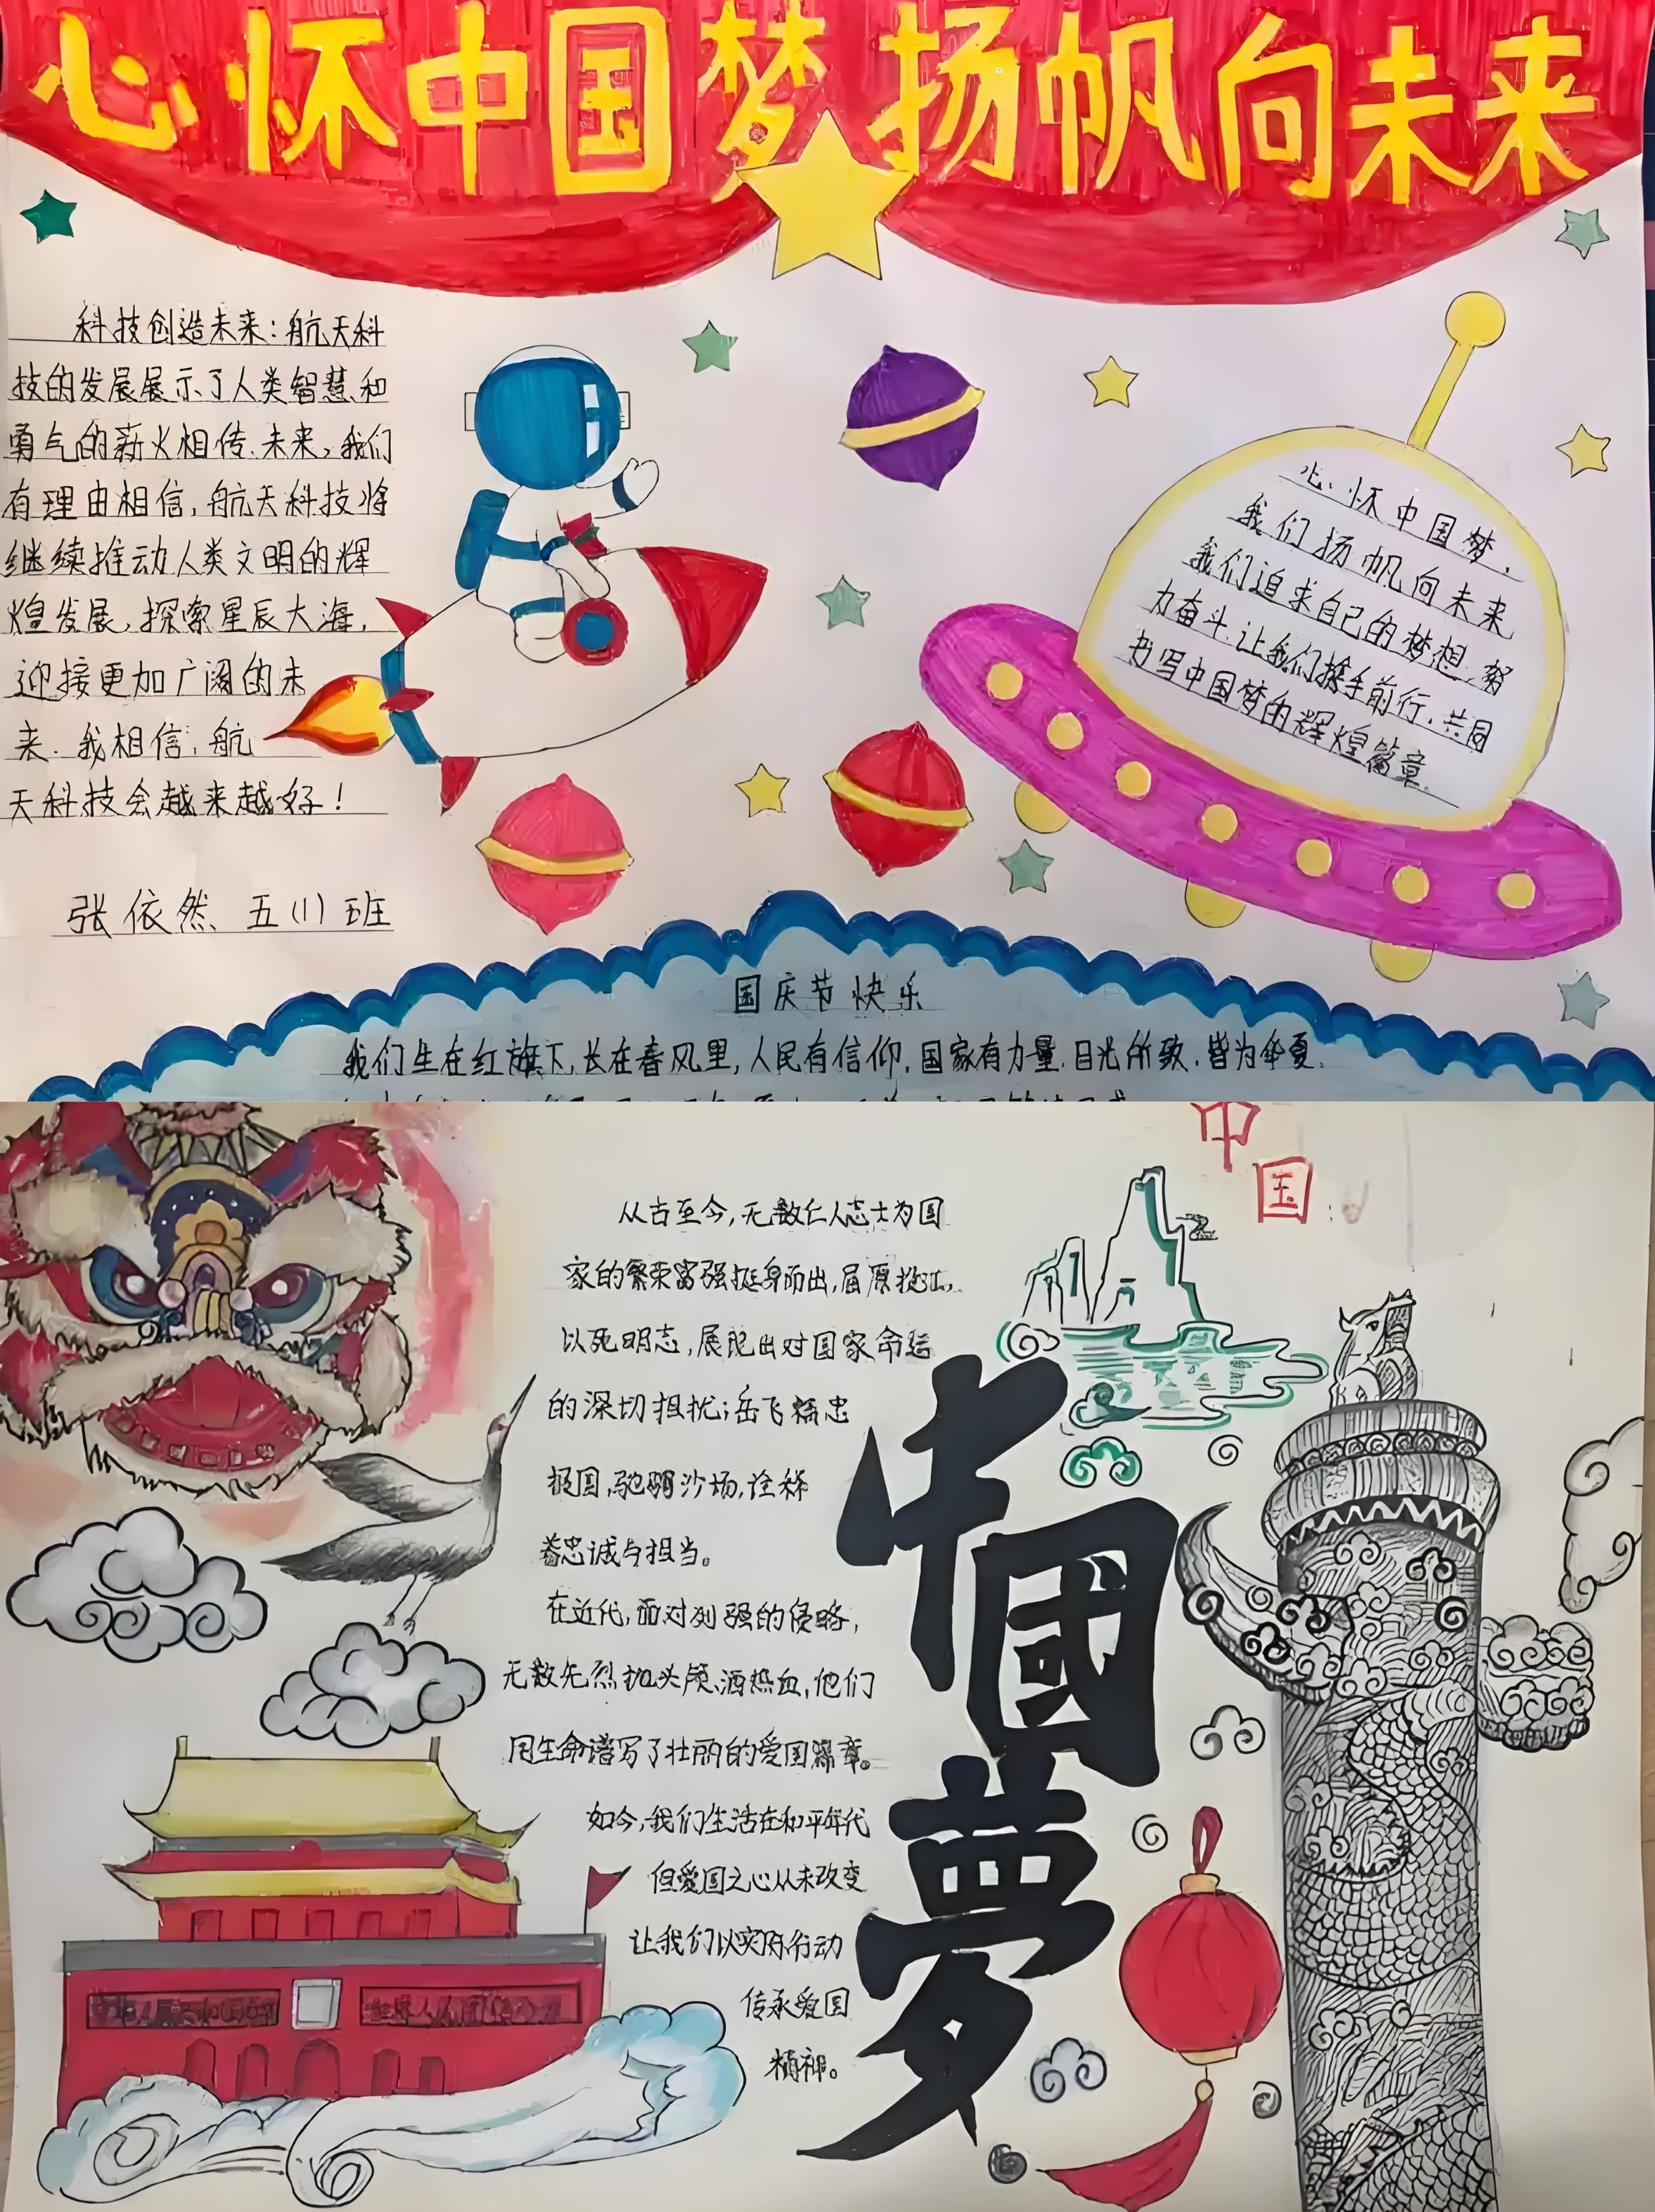 心怀中国梦 扬帆向未来
科技创造未来：航天科
技的发展展示了人类智慧和
勇气的薪火相传.未来,我们
有理由相信,航天科技将
继续推动人类文明的辉
煌发展,探索星辰大海,
迎接更加广阔的未
来.我相信,航
天科技会越来越好!
张依然 五(1)班
心怀中国梦,
我们扬帆向未来
我们追求自己的梦想,努
力奋斗.让我们携手前行.共同
书写中国梦的辉煌篇章.
国庆节快乐
我们生在红旗下,长在春风里,人民有信仰,国家有力量.目光所致.皆为华夏.
中
国
从古至今,无数仁人志士为国
家的繁荣富强挺身而出,屈原投江,
以死明志,展现出对国家命运
的深切担忧;岳飞精忠
报国,驰骋沙场,诠释
着忠诚与担当。
在近代,面对列强的侵略,
无数先烈抛头颅、洒热血,他们
用生命谱写了壮丽的爱国篇章。
如今,我们生活在和平年代
但爱国之心从未改变
让我们以实际行动
传承爱国
精神。
中國夢